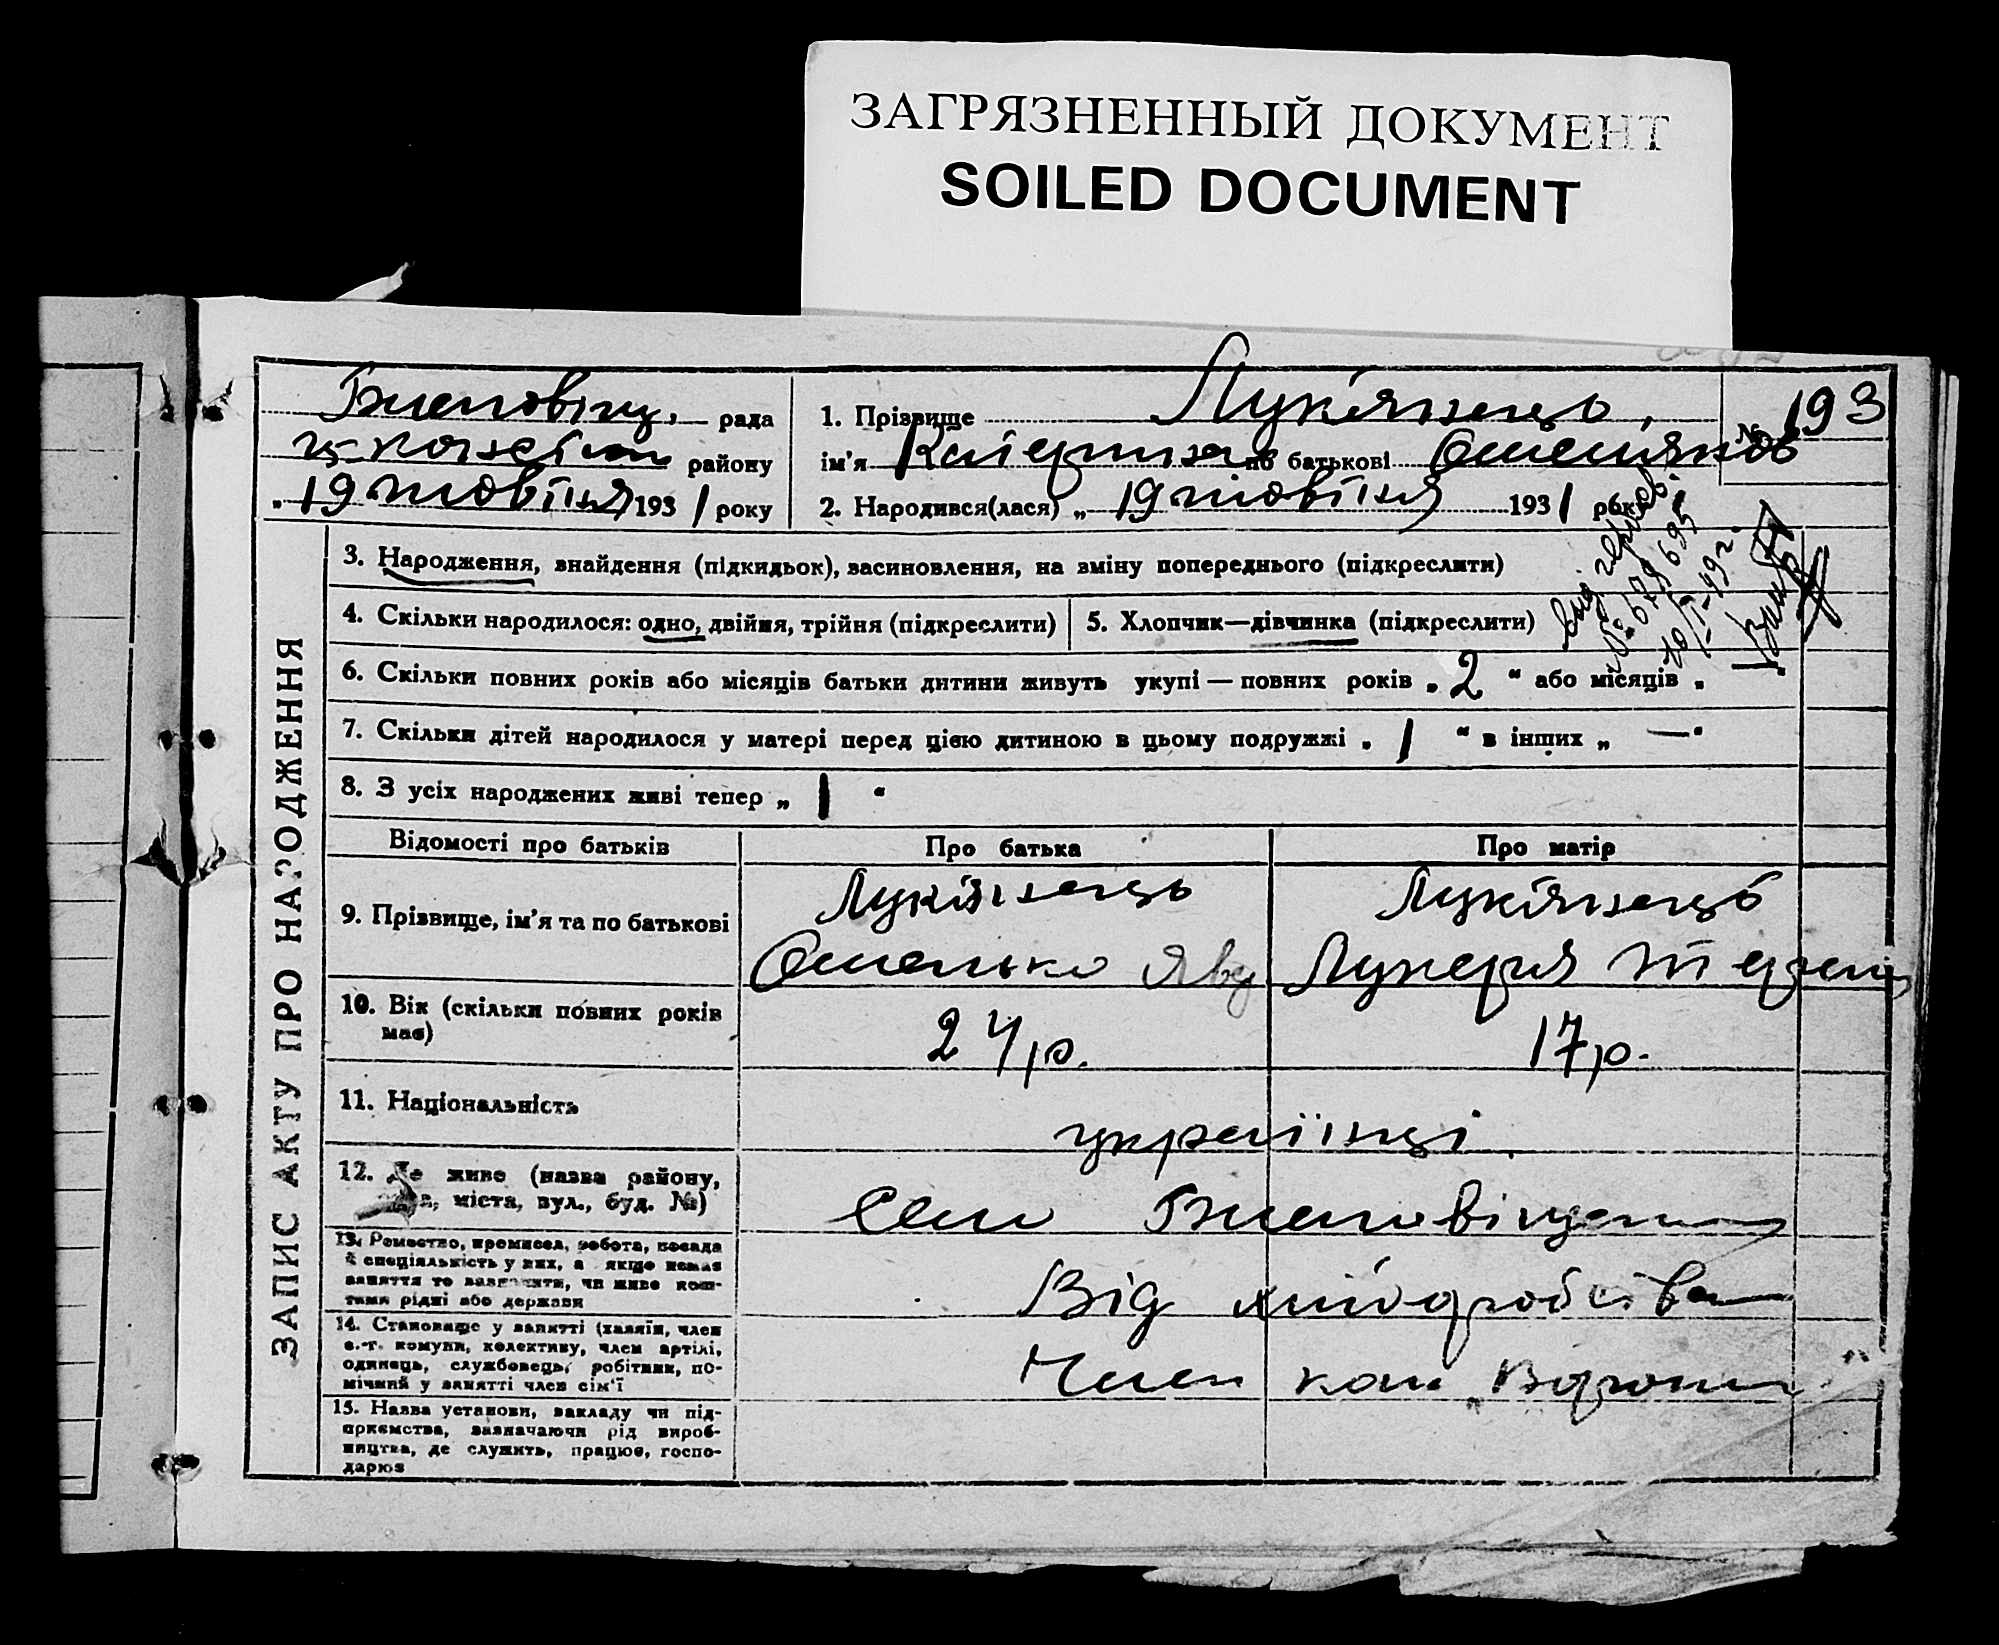 ЗАГРЯЗНЕННЫЙ ДОКУМЕНТ
SOILED DOCUMENT
рада
району
„ 19 жовтня 1931 року
1. Прізвище Лук'янець
№ 193
ім'я Катерина по батькові
2. Народився(лася) „ 19 жовтня 1931 року
ЗАПИС АКТУ ПРО НАРОДЖЕННЯ
3. Народження, знайдення (підкидьок), засиновлення, на зміну попереднього (підкреслити)
4. Скільки народилося: одно, двійня, трійня (підкреслити)
5. Хлопчик—дівчинка (підкреслити)
6. Скільки повних років або місяців батьки дитини живуть укупі — повних років „ 2 “ або місяців „
7. Скільки дітей народилося у матері перед цією дитиною в цьому подружжі „ 1 “ в інших „ — “
8. З усіх народжених живі тепер „ 1 “
Відомості про батьків
Про батька
Про матір
9. Прізвище, ім'я та по батькові
Лук'янець
Омелько
Лук'янець
Лукерія
10. Вік (скільки повних років має)
24 р.
17 р.
11. Національність
українці
12. Де живе (назва району, міста, вул., буд. №)
Село
13. Ремество, промисел, робота, посада й спеціяльність у них, а якщо немає заняття то зазначити, чи живе коштами рідні або держави
Від хліборобства
14. Становище у занятті (хазяїн, член с.-г. комуни, колективу, член артілі, одинець, службовець, робітник, помічний у занятті член сім'ї
Член
15. Назва установи, закладу чи підприємства, зазначаючи рід виробництва, де служить, працює, господарює